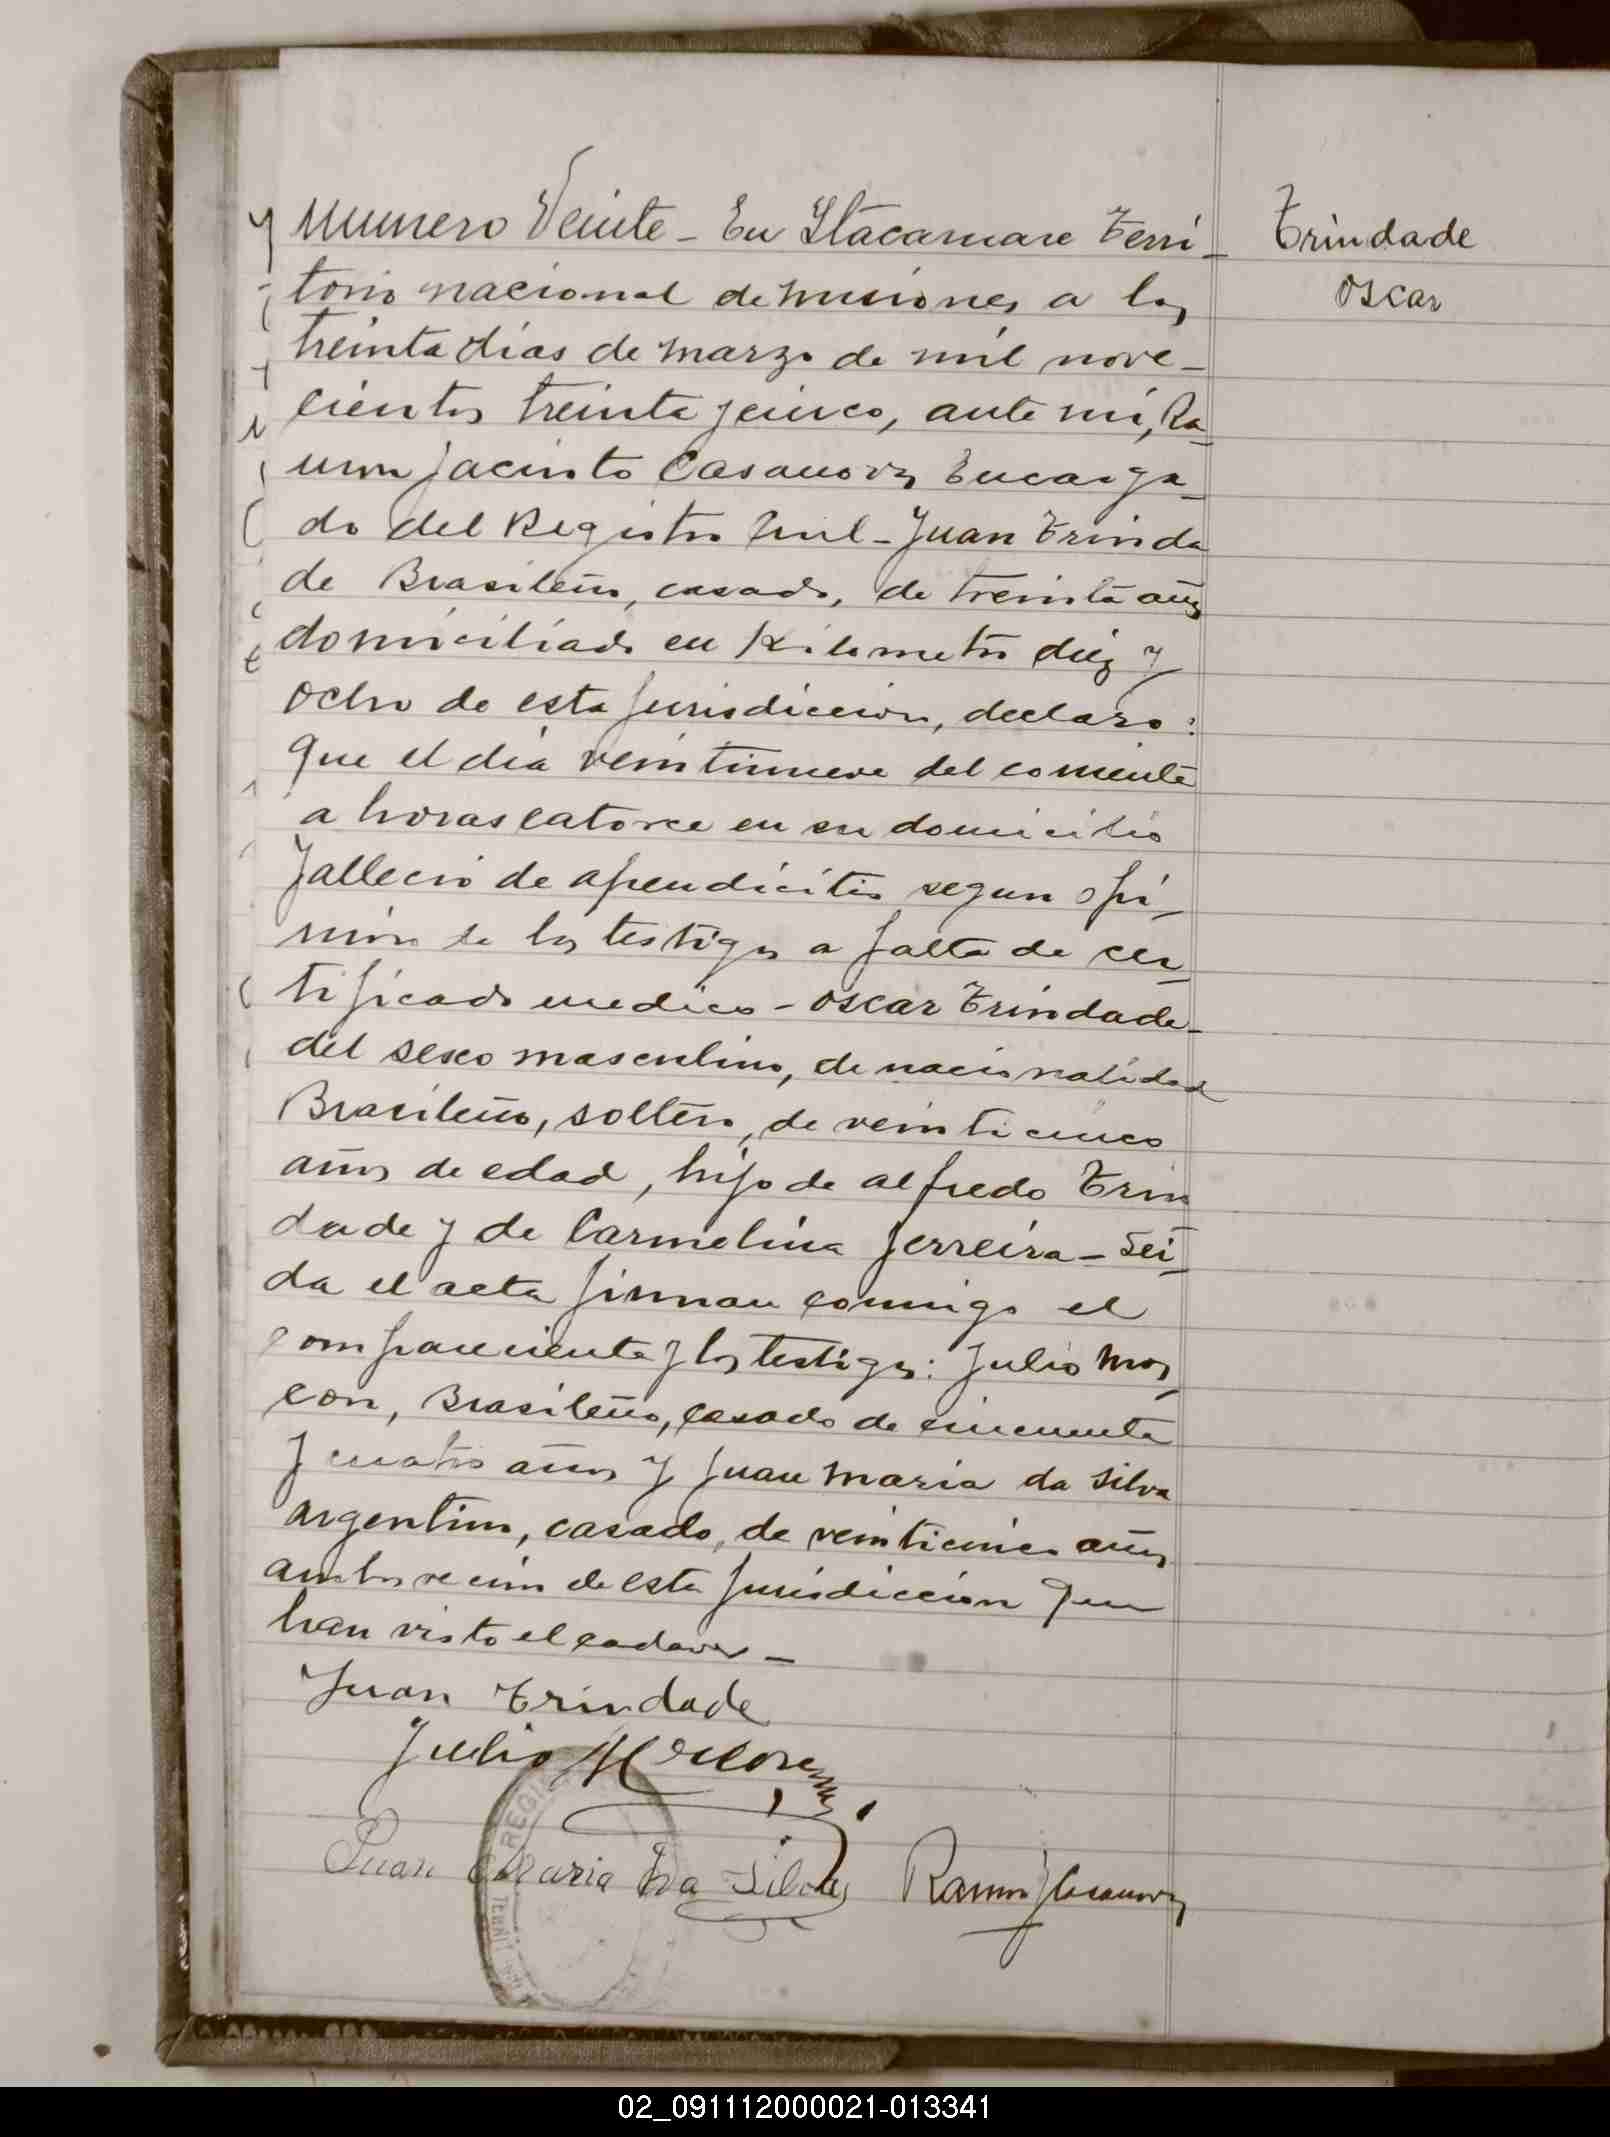 Numero Veinte - En Itacaruare Terri-
torio nacional de Misiones a los
treinta dias de Marzo de mil nove-
cientos treinta y cinco, ante mi, Ra-
mon Jacinto Casanova Encarga-
do del Registro Civil - Juan Trinda
de Brasileño, casado, de treinta años
domiciliado en Kilometro diez y
ocho de esta jurisdiccion, declaro:
Que el dia veintinueve del corriente
a horas catorce en su domicilio
fallecio de apendicitis segun opi-
nion de los testigos a falta de cer-
tificado medico - Oscar Trindade-
del sexo masculino, de nacionalidad
Brasileño, soltero, de veinticinco
años de edad, hijo de Alfredo Trin
dade y de Carmelina Ferreira - Lei-
da el acta firman conmigo el
compareciente y los testigos: Julio
con, Brasileño, casado de cincuenta
y cuatro años y Juan Maria da Silva
argentino, casado, de veinticinco años
ambos vecinos de esta jurisdiccion que
han visto el cadaver -
Juan Trindade
Julio
Juan Maria Da Silva Ramon J Casanova
Trindade
Oscar
REGIS
TERRIT
02_091112000021-013341